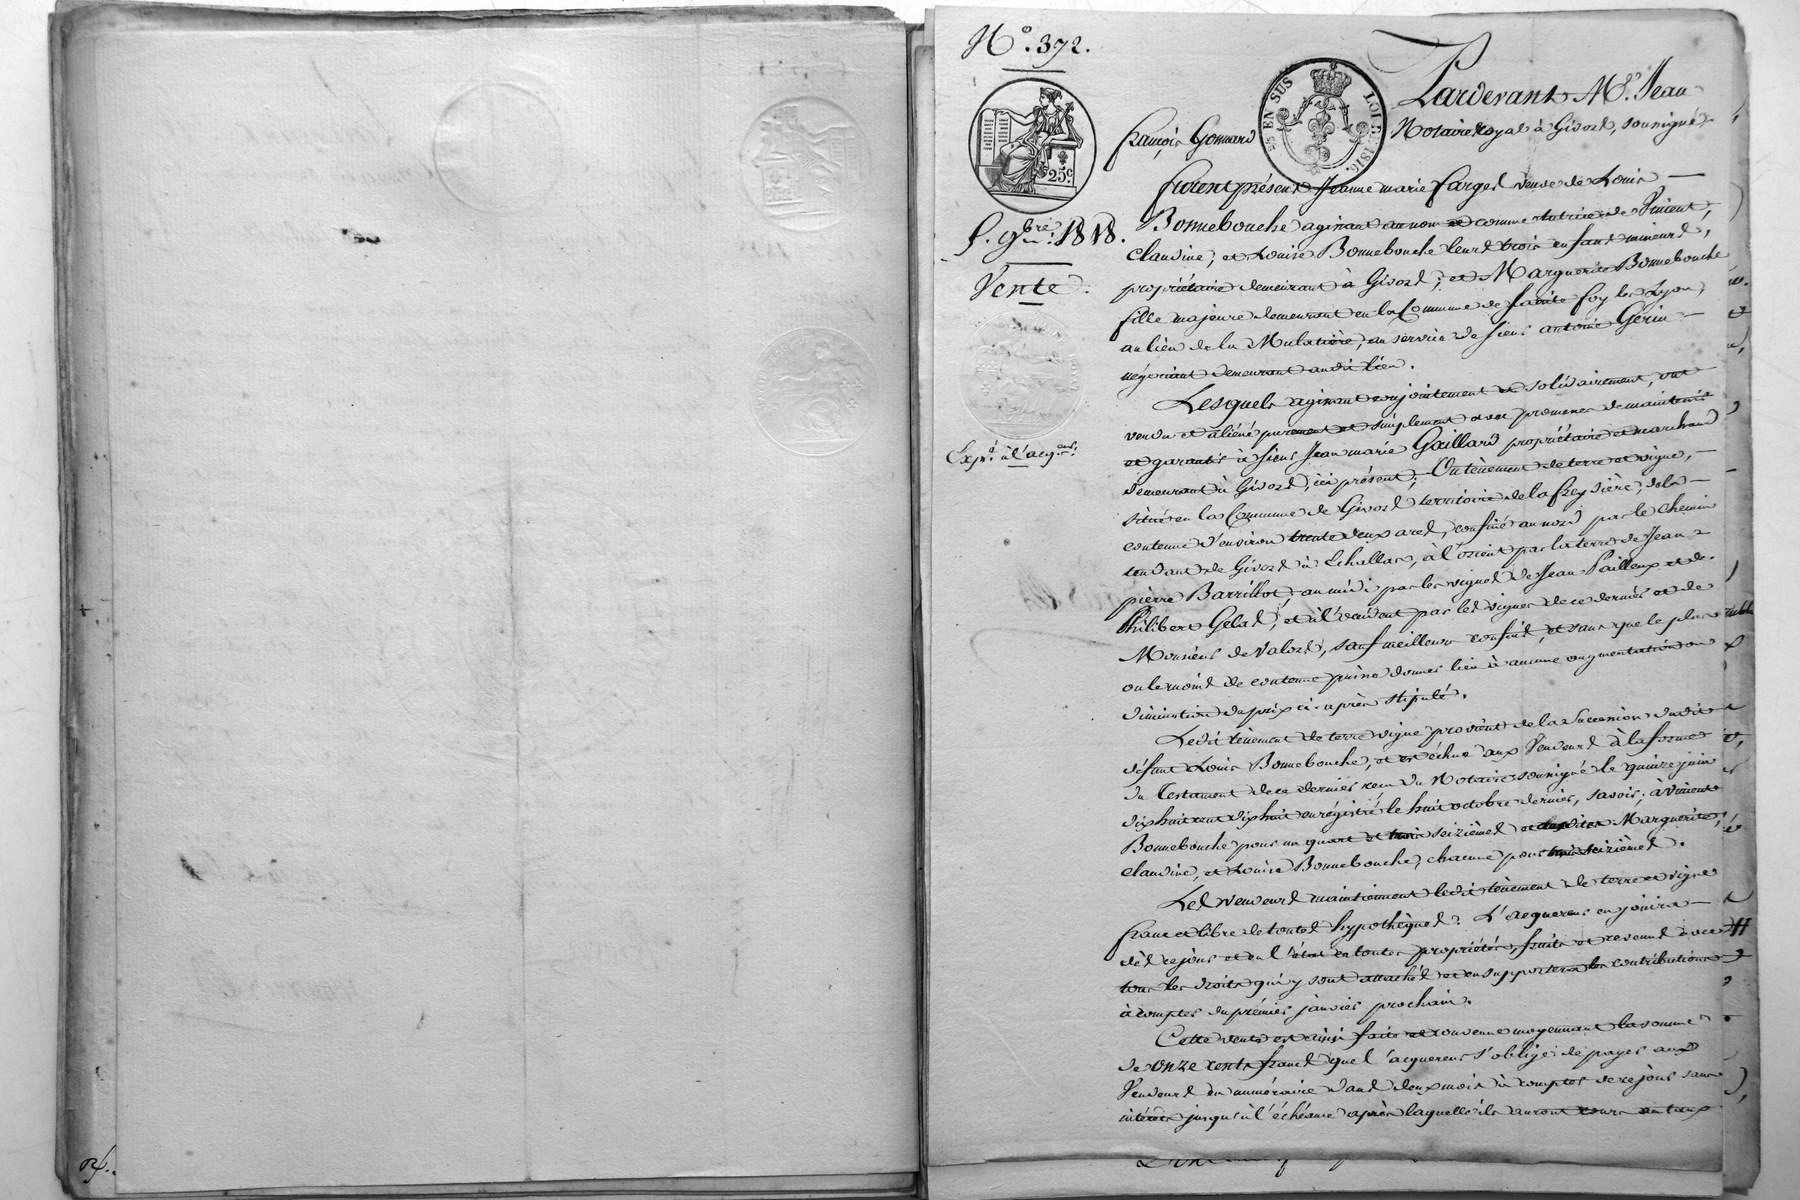 N.° 372.
25 EN SUS
LOI DE 1816
25 c.
Pardevant M.e Jean
françois Gonnard Notaire royal à Givord, soussigné
furent présens Jeanne marie farges veuve de Louis
5. 9bre 1818.
Bonnebouche agissant au nom et comme tutrice de Vincent,
claudine, et Louise Bonnebouche leurs trois enfans mineurs,
Vente.
propriétaire demeurant à Givord, et Marguerite Bonnebouche
fille majeure demeurant en la Commune de Sainte foy les Lyon,
au lieu de la Mulatière, au service de sieur antoine Gérin
négociant demeurant audit lieu.
Lesquels agissant conjointement et solidairement, ont
vendu et aliéné purement et simplement avec promesse de maintenir
Expd. à l'acqr.
et garantir à sieur Jean marie Gaillard propriétaire et marchand
demeurant à Givord, ici présent; Un tènement de terre et vigne,
situé en la Commune de Givord territoire de la freydière, de la
contenue d'environ trente deux ares, confiné au nord par le chemin
tendant de Givord à Echallas, à l'orient par la terre de Jean
pierre Barrillot, au midi par les vignes de Jean Pailleux et de
Philibert Gelas, et à l'occident par les vignes de ce dernier et de
Monsieur de Valors, sauf meilleurs confins, et sans que le plus
ou le moins de contenue puisse donner lieu à aucune augmentation ou
diminution du prix ci-après stipulé.
Ledit tènement de terre vigne provient de la succession dudit
défunt Louis Bonnebouche, et est échue aux Vendeurs à la forme
du Testament de ce dernier reçu du Notaire soussigné le quinze juin
dix huit cent dix huit enrégistré le huit octobre dernier, savoir; à Vincent
Bonnebouche pour un quart et trois seizièmes et auxdites Marguerite,
claudine, et Louise Bonnebouche, chacune pour trois seizièmes.
Les Vendeurs maintiennent ledit tènement de terre et vigne
franc et libre de toutes hypothèques. L'acquereur en jouira
dès ce jour et en l'état en toutes propriétés, fruits et revenus avec
tous les droits qui y sont attachés et en supportera les contributions
à compter du prémier janvier prochain.
Cette vente est ainsi faite et convenue moyennant la somme
de onze cents francs que l'acquereur s'oblige de payer aux
Vendeurs en numéraire dans deux mois à compter de ce jour sans
intérêts jusqu'à l'échéance après laquelle ils auront cours au taux